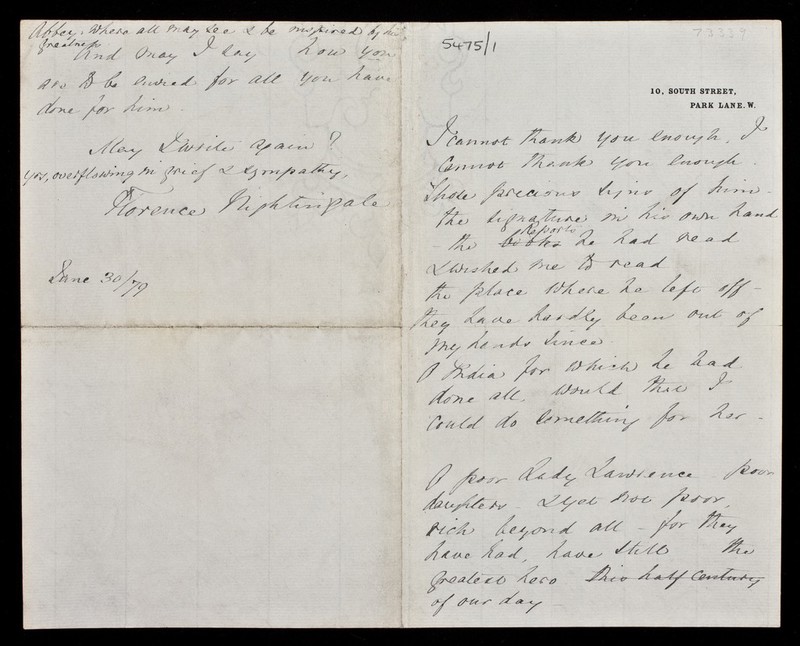 5475/1
73339
10, SOUTH STREET,
PARK LANE. W.
I cannot thank you enough. I
cannot thank you enough.
Those precious signs of him -
the signature in his own hand
- the books Reports he had read
& wished me to read
the place where he left off -
they have hardly been out of
my hands since.
O India for which he had
done all. Would that I
could do something for her -
O poor Lady Lawrence poor
daughters & yet not poor,
rich beyond all - for they
have had, have still the
greatest hero this half century
of our day
Abbey, where all may see & be inspired by his
greatness
And may I say how you
are to be envied for all you have
done for him.
May I write again?
yrs, overflowing in grief & sympathy,
Florence Nightingale
June 30/79